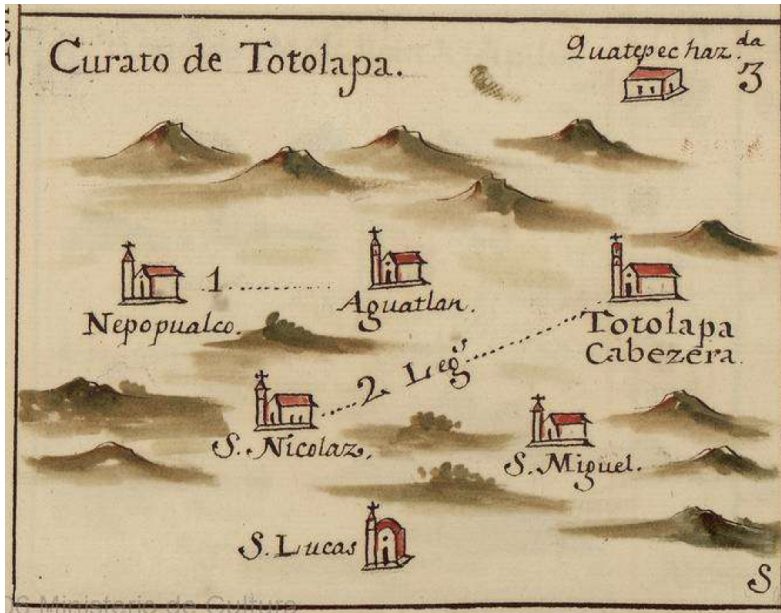 Curato de Totolapa.
Quatepec haz.da
3
1
Nepopualco.
Aguatlan.
Totolapa
Cabezera.
2 Legs
S. Nicolaz.
S. Miguel.
S. Lucas
S
Ministerio de Cultura